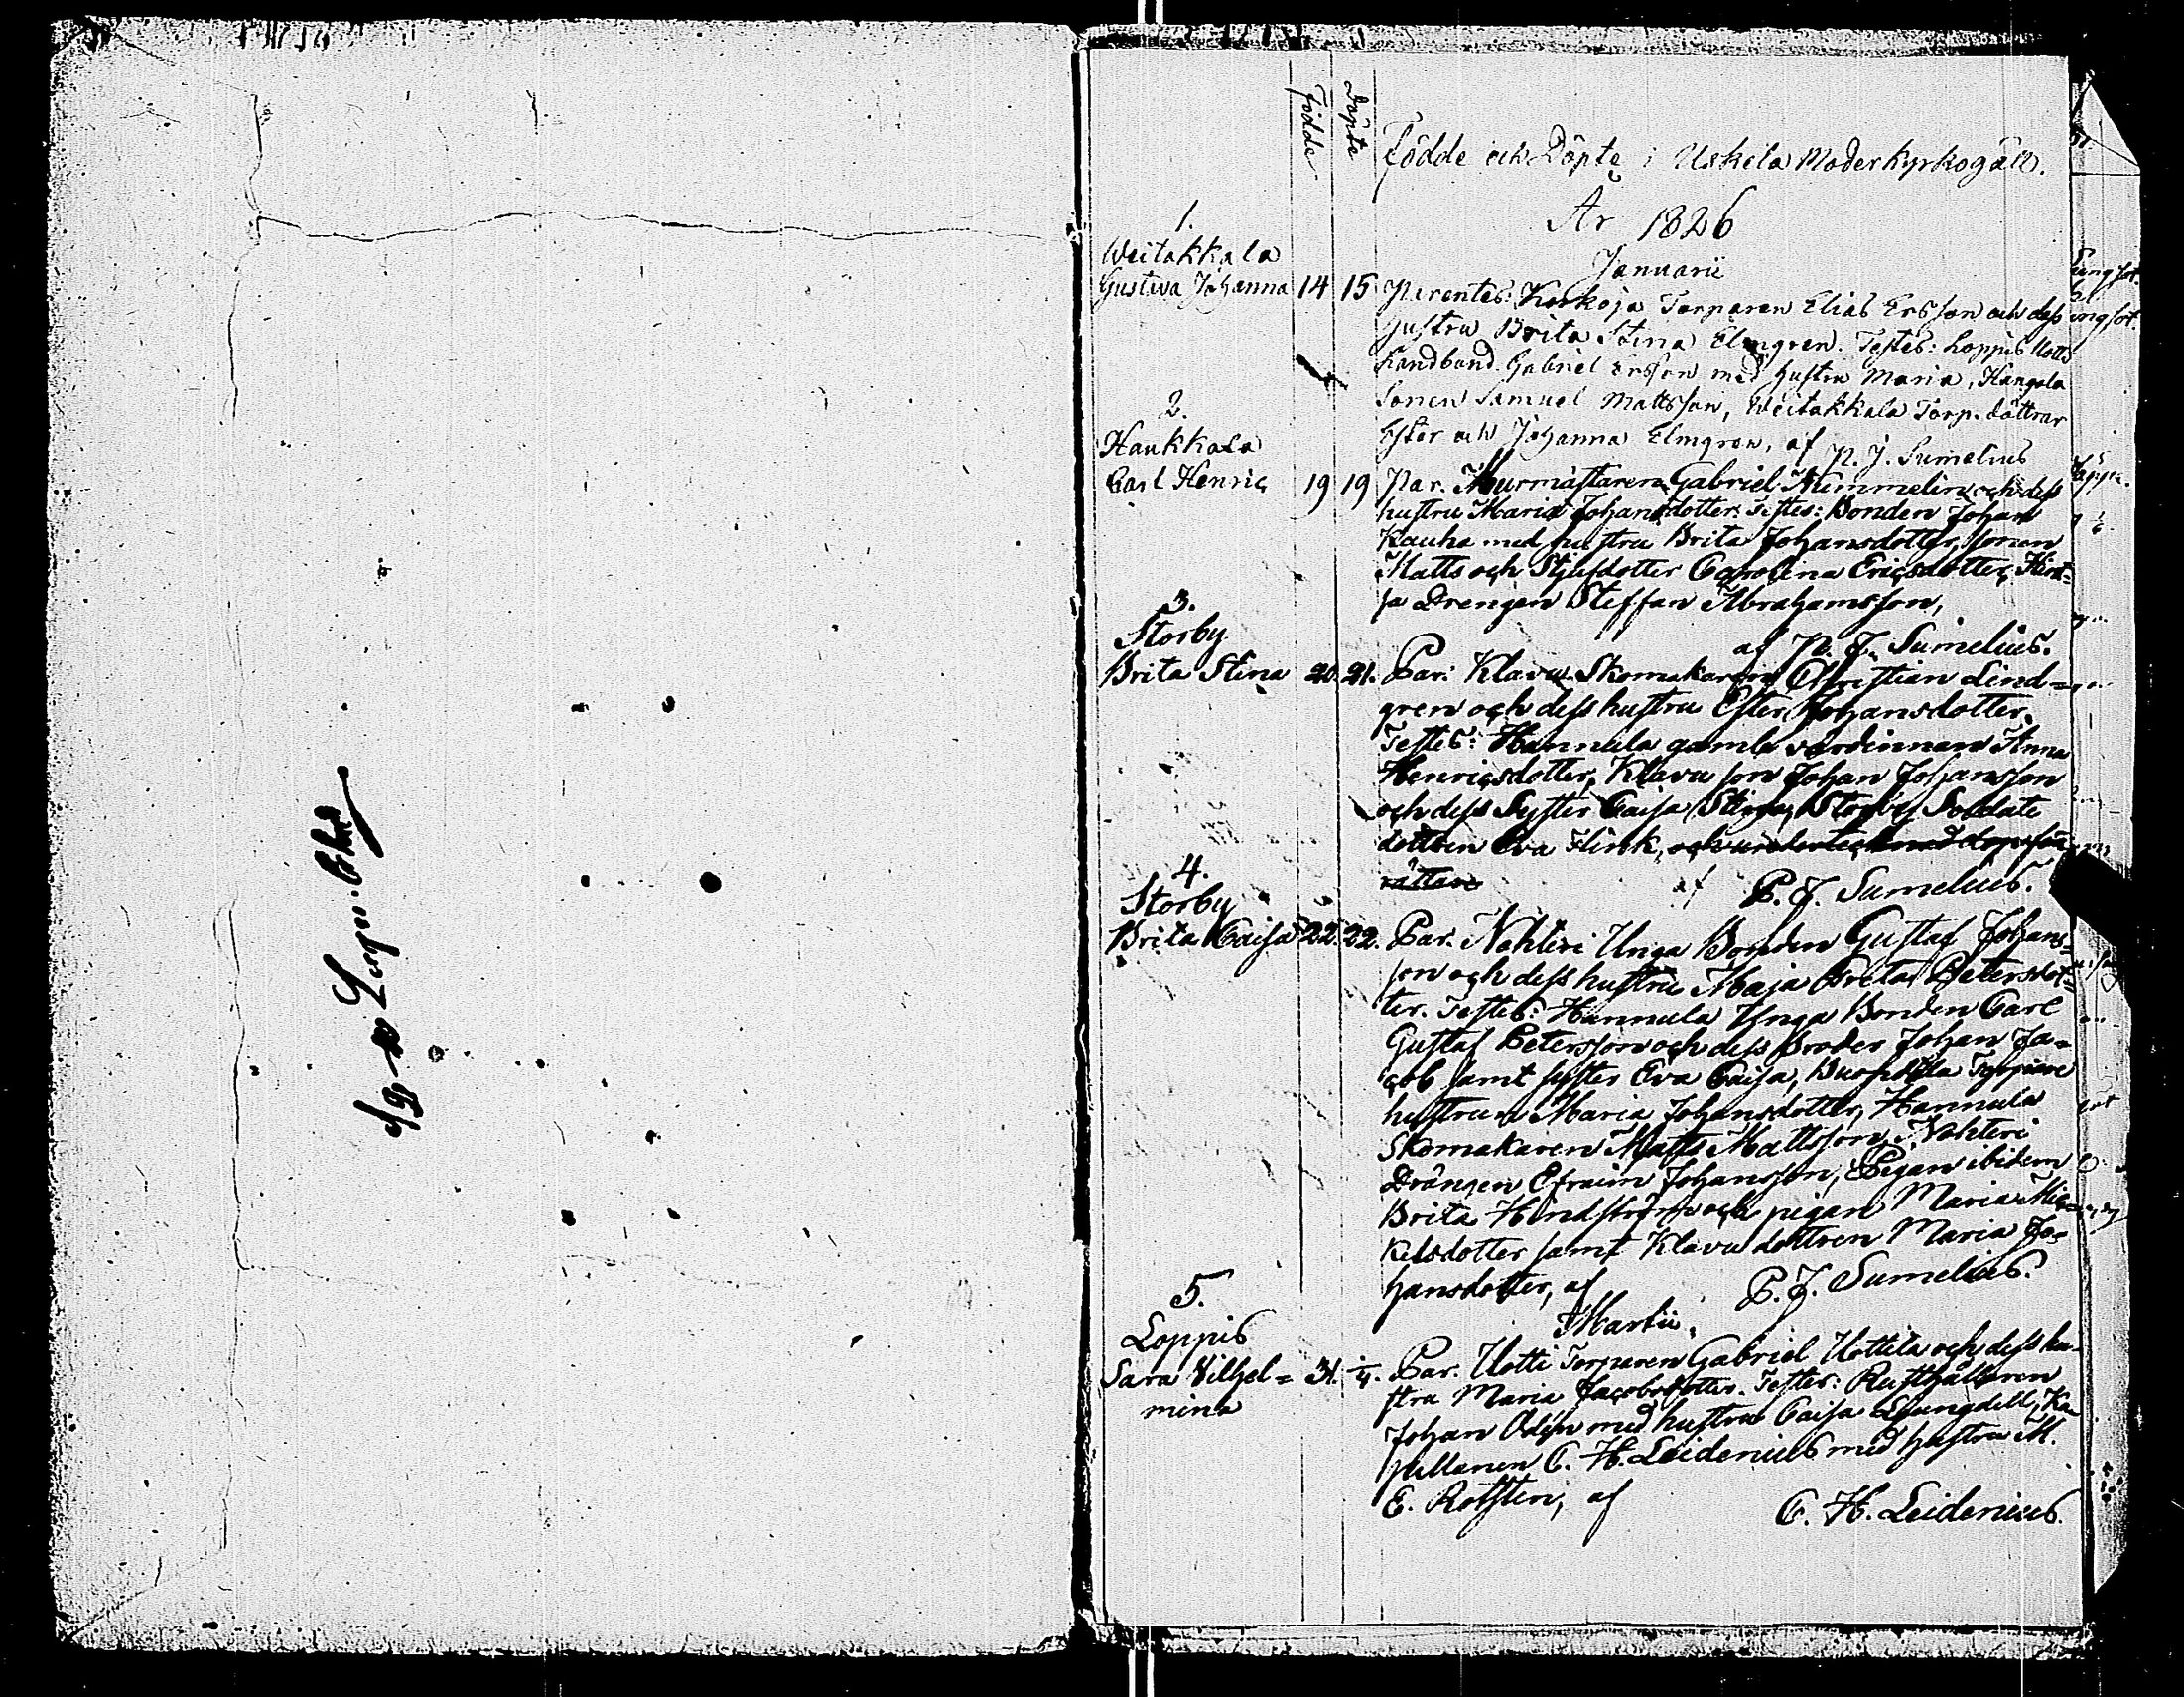 Födde
Döpte
Födde och Döpte i Uskela Moderkyrkogäll.
År 1826
Januarii
1.
Weitakkala
Gustava Johanna 14 15 Parentes: Korkoja Torparen Elias Ersson och dess
hustru Brita Stina Elmgren. Testes: Loppis Uotti
Landbond. Gabriel Ersson med hustru Maria, Hangola
Sonen Samuel Mattsson, Weitakkala Torp. döttrar
Ester och Johanna Elmgren, af P. J. Sumelius
2.
Haukkala
Carl Henric 19 19 Par. Murmästaren Gabriel Nummelin och dess
hustru Maria Johansdotter. Testes: Bonden Johan
Kauha med hustru Brita Johansdotter, sonen
Matts och Stjufdotter Carolina Ericsdotter,
Drengen Steffan Abrahamsson,
af P. J. Sumelius.
3.
Storby
Brita Stina 20. 21. Par: Klavu Skomakaren Christian Lind=
gren och dess hustru Ester Johansdotter.
Testes: Hannula gamla värdinnan Anna
Henricsdotter, Klavu son Johan Johansson
och dess Syster Caisa Stina, Storby Soldate
dottren Eva Flink, och undertecknad
rättare af P. J. Sumelius.
4.
Storby
Brita Caisa 22. 22. Par. Nohteri Unga Bonden Gustaf Johans=
son och dess hustru Maja Greta Petersdot=
ter. Testes: Hannula Unga Bonden Carl
Gustaf Petersson och dess Broder Johan Ja=
cob samt syster Eva Caisa,
hustrun Maria Johansdotter, Hannula
Skomakaren Matts Mattsson, Nohteri
Drängen Efraim Johansson, Pigan ibidem
Brita Hindström och pigan Maria Mic=
kelsdotter samt Klavu dottren Maria Jo=
hansdotter, af P. J. Sumelius.
Martii.
5.
Loppis
Sara Vilhel= 31. 1/4. Par. Uotti Torparen Gabriel Uottila och dess hu=
mina
stru Maria Jacobsdotter. Testes: Rusthållaren
Johan Odén med hustru Caisa Ljungdell, Ka=
pellanen C. H. Leidenius med hustru M.
E. Rotsten, af C. H. Leidenius.